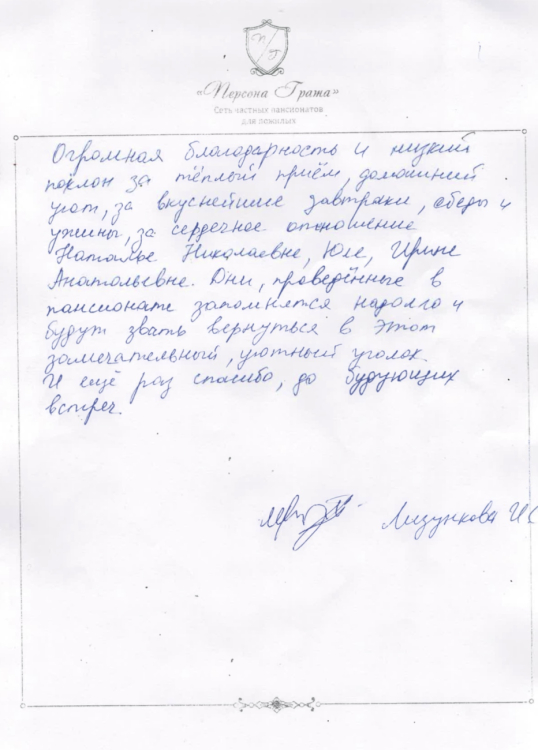 П/Г
«Персона Грата»
Сеть частных пансионатов
для пожилых
Огромная благодарность и низкий
поклон за тёплый приём, домашний
уют, за вкуснейшие завтраки, обеды и
ужины, за сердечное отношение
Наталье Николаевне, Юле, Ирине
Анатольевне. Дни, проведённые в
пансионате запомнятся надолго и
будут звать вернуться в этот
замечательный, уютный уголок.
И ещё раз спасибо, до будующих
встреч.
Лизункова И.